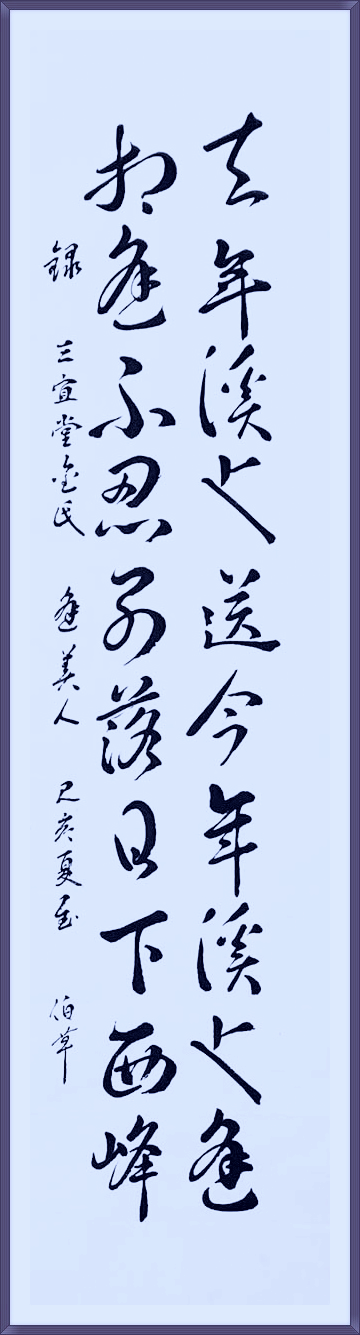 去年溪上送今年溪上逢
相逢不忍別落日下西峰
錄 三宜堂金氏 逢美人 己亥夏至 伯草